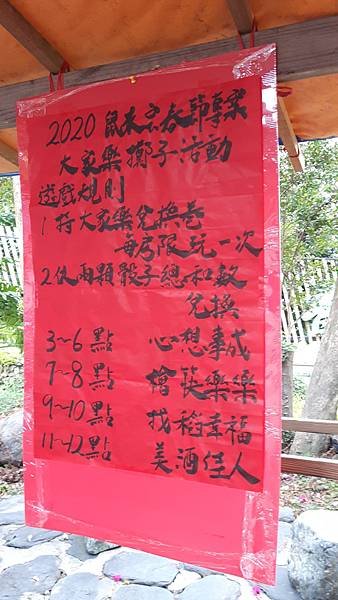 2020 鼠來宏春節專案
大家樂擲子活動
遊戲規則
1 持大家樂兌換卷
每房限玩一次
2.以兩顆骰子總和數
兌換
3~6 點 心想事成
7~8 點 檜筷樂樂
9~10 點 找稻幸福
11~12 點 美酒佳人